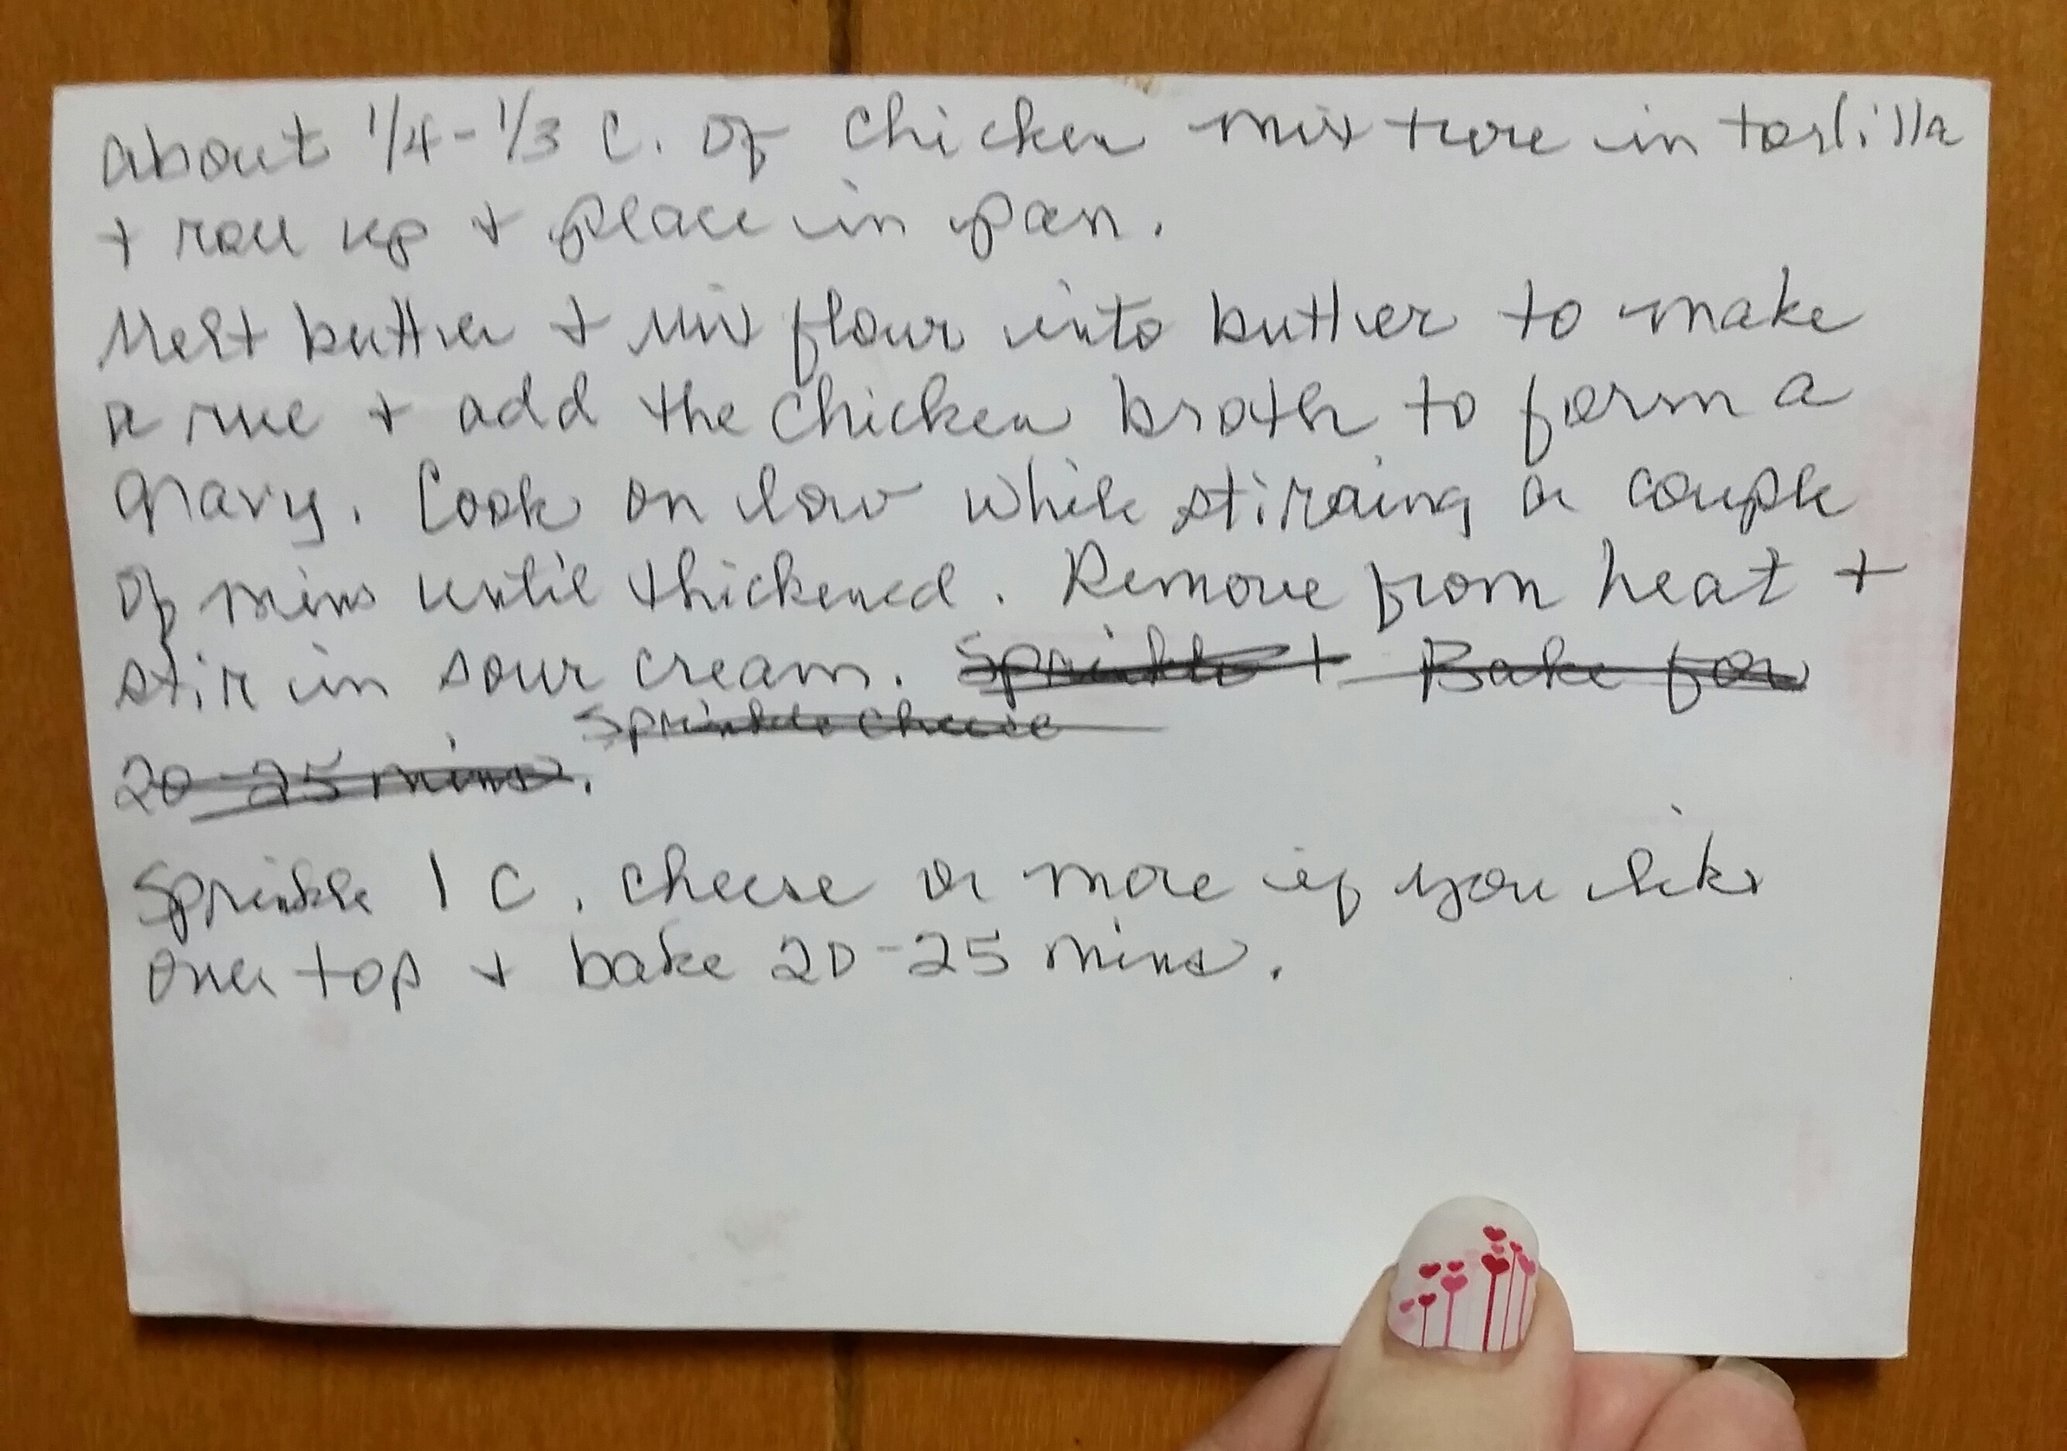 about 1/4 - 1/3 C. of chicken mixture in tortilla
+ roll up + place in pan.
Melt butter + mix flour into butter to make
a rue + add the chicken broth to form a
gravy. Cook on low while stirring a couple
of mins until thickened. Remove from heat +
stir in sour cream. Sprinkle + Bake for
Sprinkle cheese
20-25 mins.
Sprinkle 1 C. cheese or more if you like
over top + bake 20-25 mins.